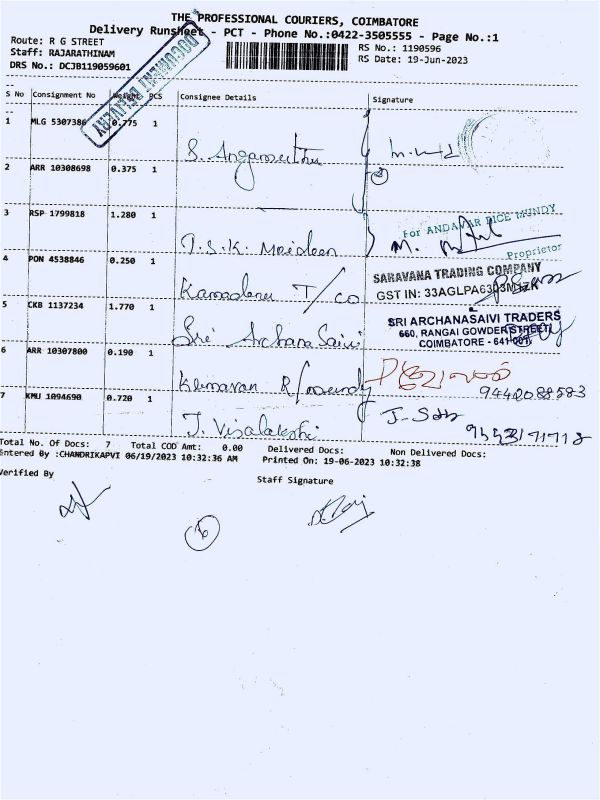 THE PROFESSIONAL COURIERS, COIMBATORE
Delivery Runsheet - PCT - Phone No.:0422-3505555 - Page No.:1
Route: R G STREET
RS No.: 1190596
Staff: RAJARATHINAM
RS Date: 19-Jun-2023
DRS No.: DCJB119059601
DOCUMENT DELIVERY
S No Consignment No Weight PCS Consignee Details Signature
1 MLG 5307386 0.775 1
S. Angamuthu
2 ARR 10308698 0.375 1
3 RSP 1799818 1.280 1
For ANDAVAR RICE MUNDY
Proprietor
T.S.K. Moideen
4 PON 4538846 0.250 1
SARAVANA TRADING COMPANY
GST IN: 33AGLPA6303M1ZK
Kamadenu T/Co
5 CKB 1137234 1.770 1
SRI ARCHANASAIVI TRADERS
660, RANGAI GOWDER STREET,
COIMBATORE - 641 001.
Sri Archana Saivi
6 ARR 10307800 0.190 1
Kumaran R/mundy
9442088583
7 KMU 1094690 0.720 1
J. Visalakshi
Total No. Of Docs: 7 Total COD Amt: 0.00 Delivered Docs: Non Delivered Docs:
Entered By :CHANDRIKAPVI 06/19/2023 10:32:36 AM Printed On: 19-06-2023 10:32:38
Verified By
Staff Signature